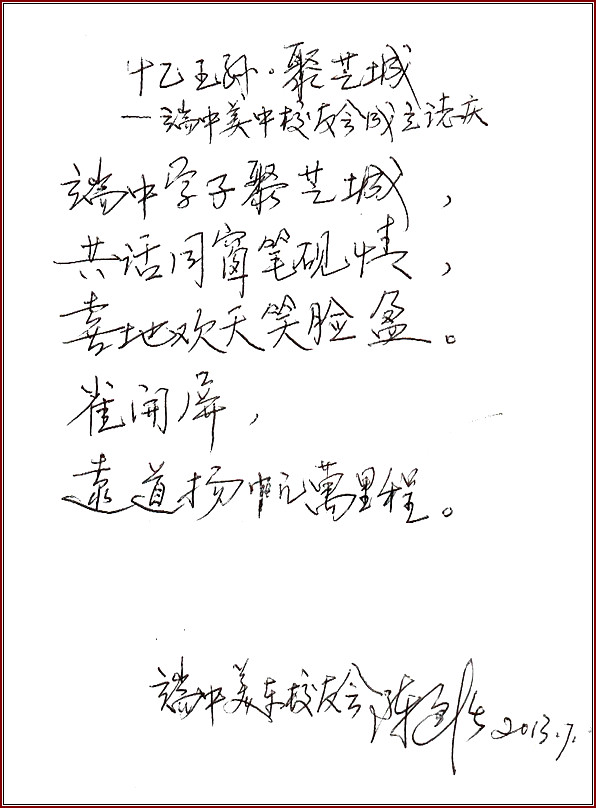 忆王孙·聚芝城
—端中美中校友会成立誌庆
端中学子聚芝城，
共话同窗笔砚情，
喜地欢天笑脸盈。
雀開屏，
遠道扬帆萬里程。
端中美东校友会 陈 2013.7.